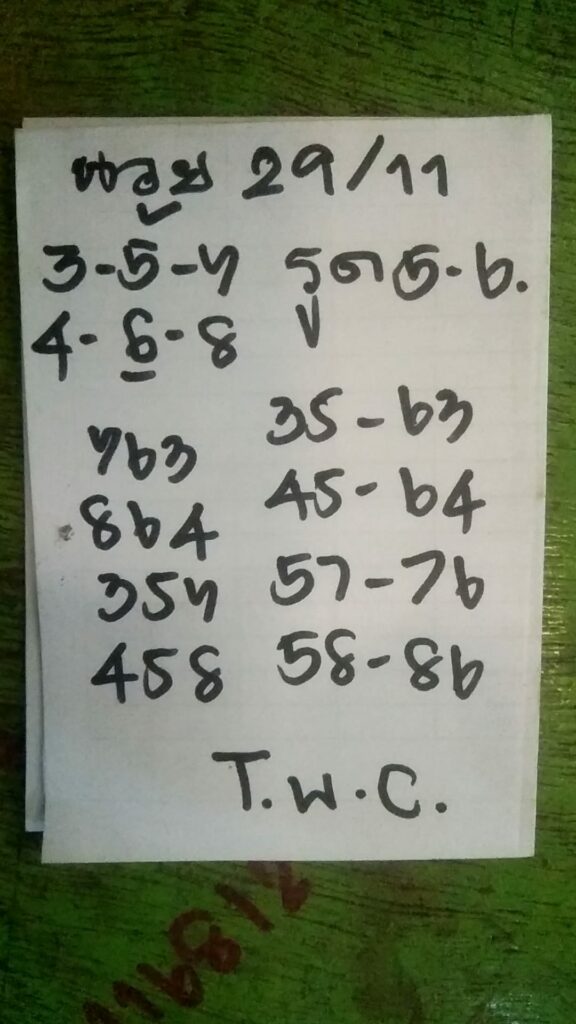 หวย 29/11
3-5-7 รูด 5-6.
4-6-8
763 35-63
864 45-64
357 57-76
458 58-86
T.W.C.